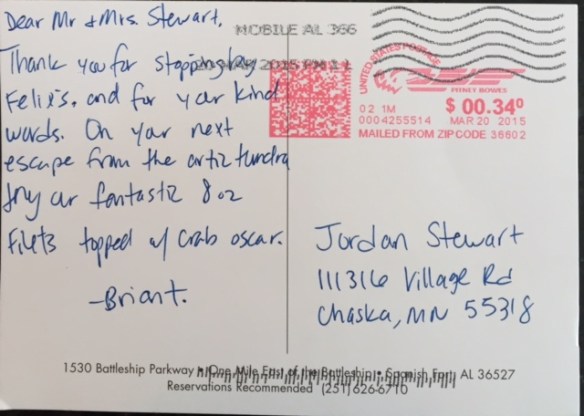 Dear Mr & Mrs. Stewart,
Thank you for stopping by
Felix's. and for your kind
words. On your next
escape from the artic tundra
try our fantastic 8 oz
Filets topped w/ crab oscar.
-Briant.
MOBILE AL 366
20 MAR 2015 PM
UNITED STATES POSTAGE
PITNEY BOWES
02 1M
$ 00.34⁰
0004255514
MAR 20 2015
MAILED FROM ZIP CODE 36602
Jordan Stewart
111316 Village Rd
Chaska, MN 55318
1530 Battleship Parkway • One Mile East of the Battleship • Spanish Fort, AL 36527
Reservations Recommended (251) 626-6710